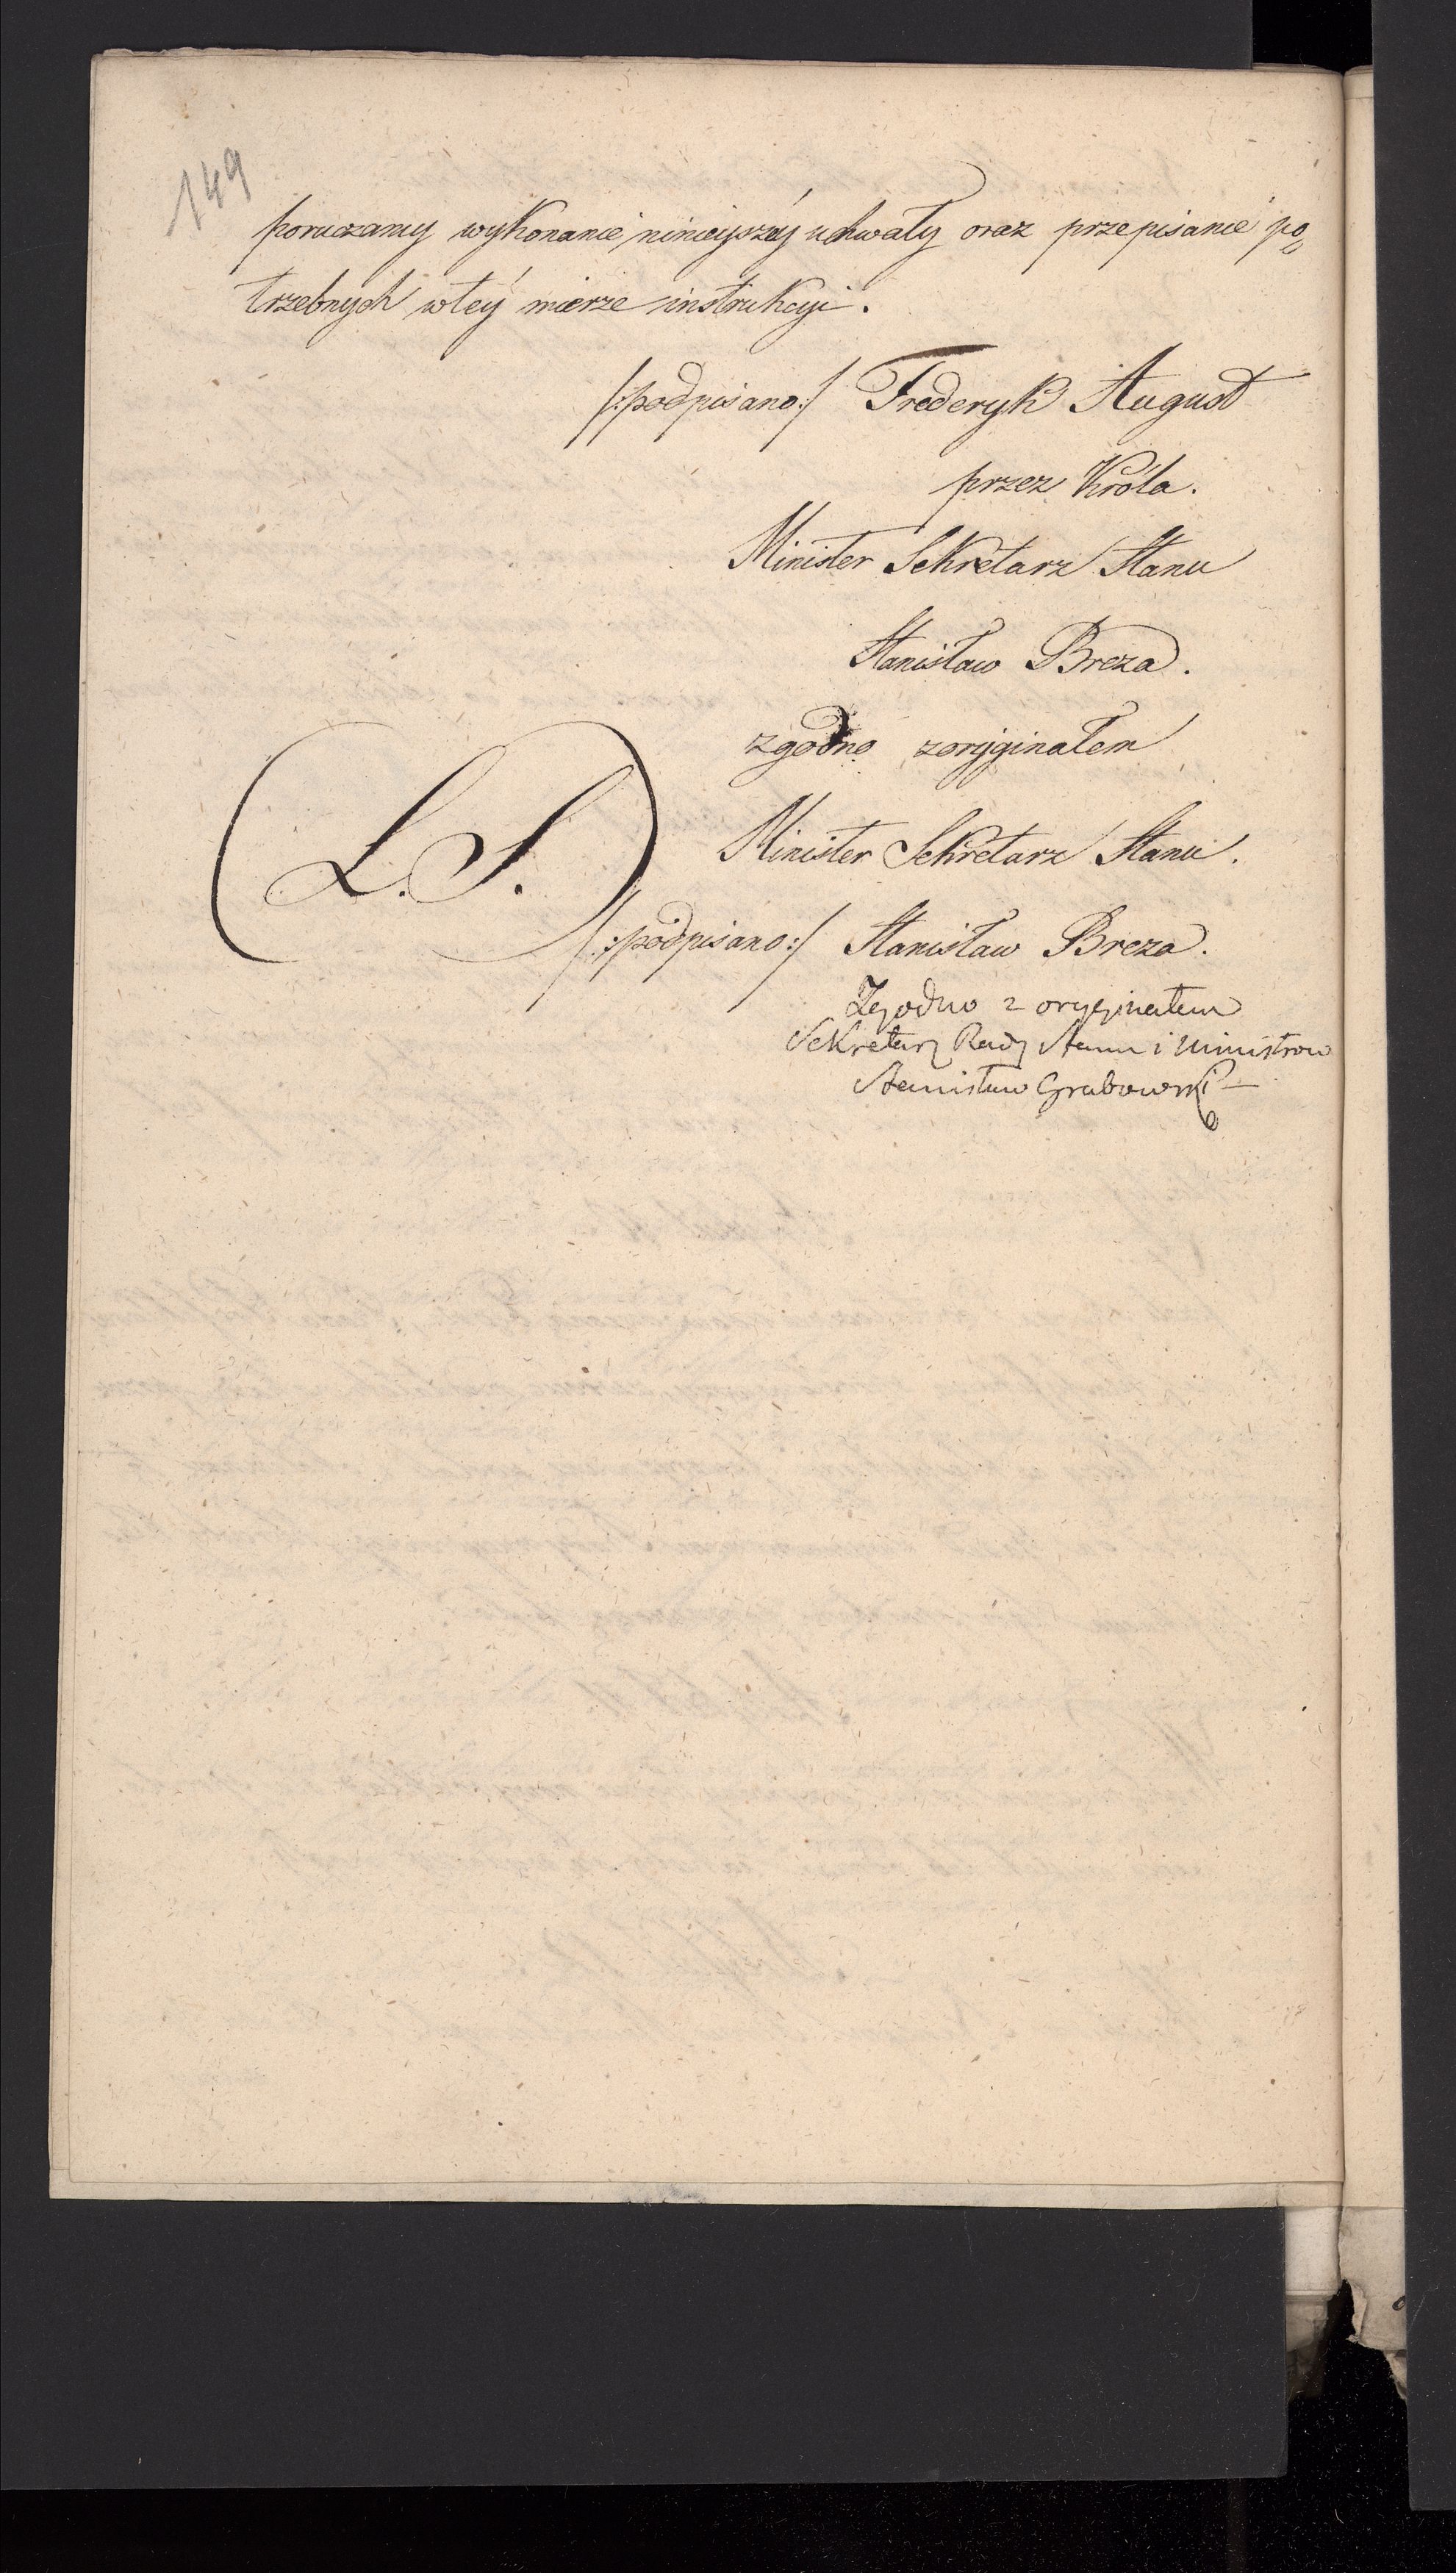 149
poruczamy wykonanie ninieyszéy uchwały oraz przepisanie po„
trzebnych wtéy mierze instrukcyi.
/:podpisano:/ Frederyk August
przez Króla.
Minister Sekretarz Stanu
Stanisław Breza.
zgodno zoryginałem
L. S.
Minister Sekretarz Stanu.
/:podpisano:/ Stanisław Breza.
Zgodno z oryginałem
Sekretarz Rady Stanu i Ministrow
Stanisław Grabowski